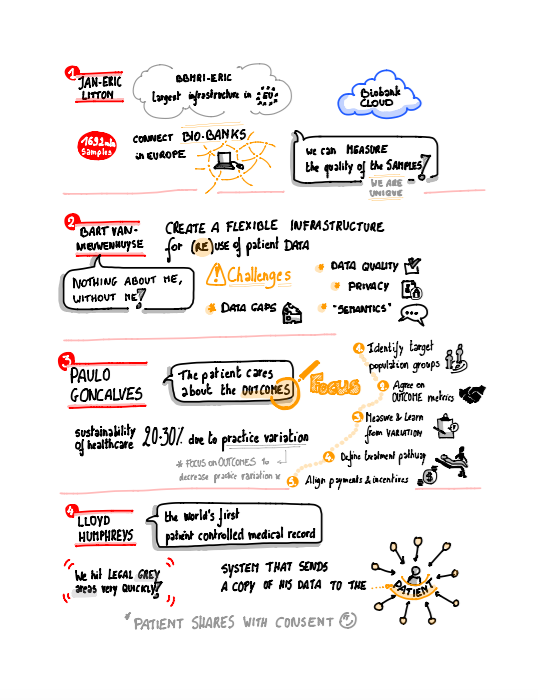 1
JAN-ERIC
LITTON
BBMRI-ERIC
Largest infrastructure in EU
Biobank
CLOUD
Samples
CONNECT BIO-BANKS
in EUROPE
We can MEASURE
the quality of the SAMPLES!
WE ARE
UNIQUE
2
BART VAN-
NIEUWENHUYSE
CREATE A FLEXIBLE INFRASTRUCTURE
for (RE)USE of patient DATA
NOTHING ABOUT ME,
WITHOUT ME!
! Challenges
DATA QUALITY
PRIVACY
DATA GAPS
"SEMANTICS"
3
PAULO
GONCALVES
The patient cares
about the OUTCOMES
FOCUS
1. Identify target
population groups
2. Agree on
OUTCOME metrics
3. Measure & Learn
from VARIATION
4. Define treatment pathway
5. Align payments & incentives
sustainability
of healthcare
20-30% due to practice variation
* FOCUS on OUTCOMES to
decrease practice variation *
4
LLOYD
HUMPHREYS
the World's first
patient controlled medical record
We hit LEGAL GREY
areas very QUICKLY!
SYSTEM THAT SENDS
A COPY OF HIS DATA TO THE
PATIENT
* PATIENT SHARES WITH CONSENT